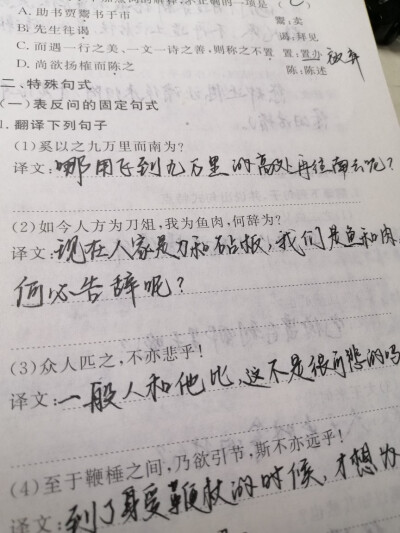 A. 助书贾鬻书于市 鬻:卖
B. 先生往谒 谒:拜见
C. 而遇一行之美,一文一诗之善,则称之不置 置:置办 放弃
D. 尚欲扬榷而陈之 陈:陈述
二、特殊句式
(一)表反问的固定句式
1. 翻译下列句子
(1)奚以之九万里而南为?
译文:哪用飞到九万里的高处再往南去呢?
(2)如今人方为刀俎,我为鱼肉,何辞为?
译文:现在人家是刀和砧板,我们是鱼和肉,
何必告辞呢?
(3)众人匹之,不亦悲乎!
译文:一般人和他比,这不是很可悲的吗
(4)至于鞭棰之间,乃欲引节,斯不亦远乎!
译文:到了身受鞭杖的时候,才想为